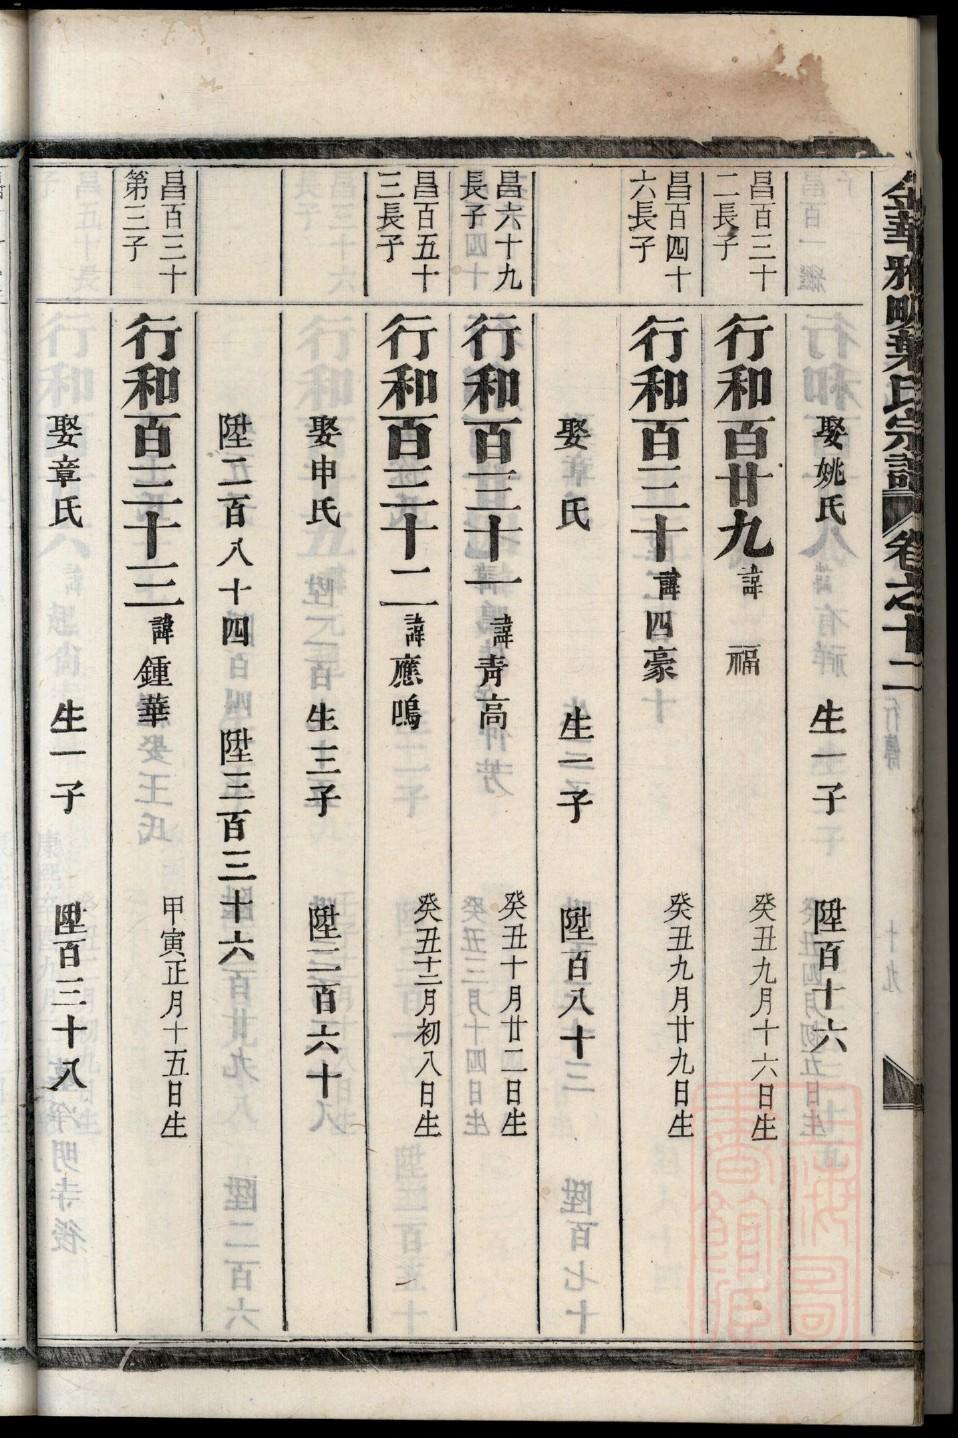 金華雅畈葉氏宗譜 卷之十二 行傳 十九
娶姚氏 生一子 陞百十六
昌百三十二長子 行和百廿九 諱福 癸丑九月十六日生
昌百四十六長子 行和百三十 諱四豪 癸丑九月廿九日生
娶章氏 生一子 陞百八十三
昌六十九長子 行和百三十一 諱青高 癸丑十月廿二日生
昌百五十三長子 行和百三十二 諱應鳴 癸丑十二月初八日生
娶申氏 生三子 陞二百六十八
陞二百八十四 陞三百三十六
昌百三十第三子 行和百三十三 諱鍾華 甲寅正月十五日生
娶章氏 生一子 陞百三十八